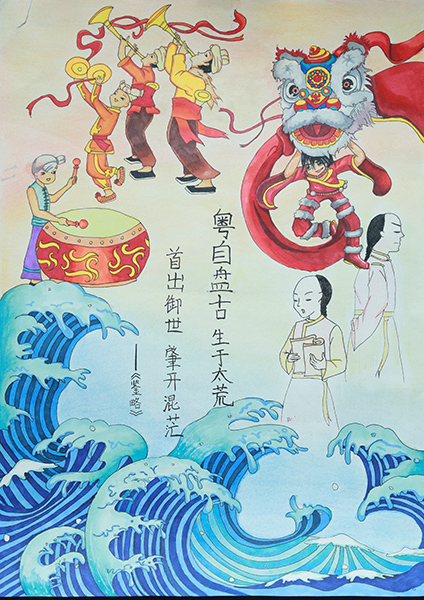 粤自盘古 生于太荒
首出御世 肇开混茫
——《鉴略》